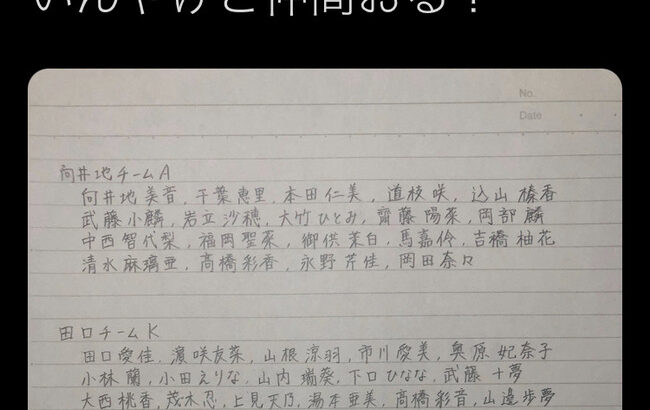 いんやけど仲間おる？
No.
Date
向井地チームA
向井地美音, 千葉恵里, 本田仁美, 道枝咲, 込山榛香
武藤小麟, 岩立沙穂, 大竹ひとみ, 齊藤陽菜, 岡部麟
中西智代梨, 福岡聖菜, 御供茉白, 馬嘉伶, 吉橋柚花
清水麻璃亜, 髙橋彩香, 永野芹佳, 岡田奈々
田口チームK
田口愛佳, 濵咲友菜, 山根涼羽, 市川愛美, 奥原妃奈子
小林蘭, 小田えりな, 山内瑞葵, 下口ひなな, 武藤十夢
大西桃香, 茂木忍, 上見天乃, 湯本亜美, 髙橋彩音, 山邊歩夢